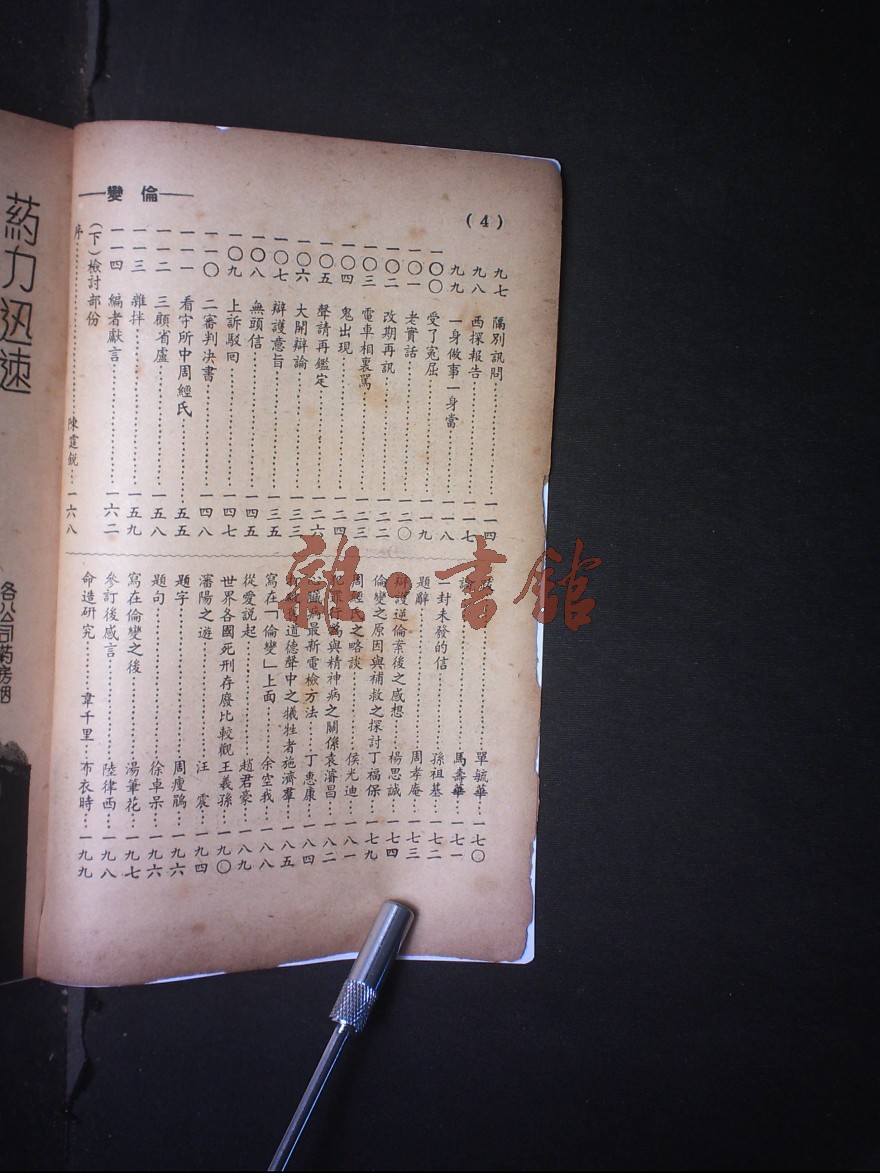 (4)
——變 倫——
九七 隔別訊問……一一四
九八 西探報告……一一七
九九 一身做事一身當……一一八
一〇〇 受了寃屈……一一九
一〇一 老實話……一二〇
一〇二 改期再訊……一二二
一〇三 電車相裏罵……一二三
一〇四 鬼出現……一二四
一〇五 聲請再鑑定……一二六
一〇六 大開辯論……一三三
一〇七 辯護意旨……一三五
一〇八 無頭信……一四五
一〇九 上訴駁囘……一四七
一一〇 二審判决書……一四八
一一一 看守所中周經氏……五五
一一二 三顧省廬……一五八
一一三 雜拌……一五九
一一四 編者獻言……一六二
(下)檢討部份
序……陳霆銳……一六八
……單毓華……一七〇
論……馬壽華……一七一
一封未發的信……孫祖基……一七二
題辭……周孝庵……一七三
辯護逆倫案後之感想……楊思誠……一七四
倫變之原因與補救之探討丁福保……一七九
周經氏之略談……侯光迪……一八一
犯罪行為與精神病之關係袁濬昌……一八二
心臟病最新電檢方法……丁惠康……一八四
道德聲中之犧牲者施濟羣……一八五
寫在「倫變」上面……余空我……一八八
從愛說起……趙君豪……一八九
世界各國死刑存廢比較觀王羲孫……一九〇
瀋陽之遊……汪 震……一九四
題字……周瘦鵑……一九六
題句……徐卓呆……一九六
寫在倫變之後……湯筆花……一九七
參訂後感言……陸律西……一九八
命造研究……韋千里…布衣時……一九九
葯力迅速
各公司葯房烟
雜·書館